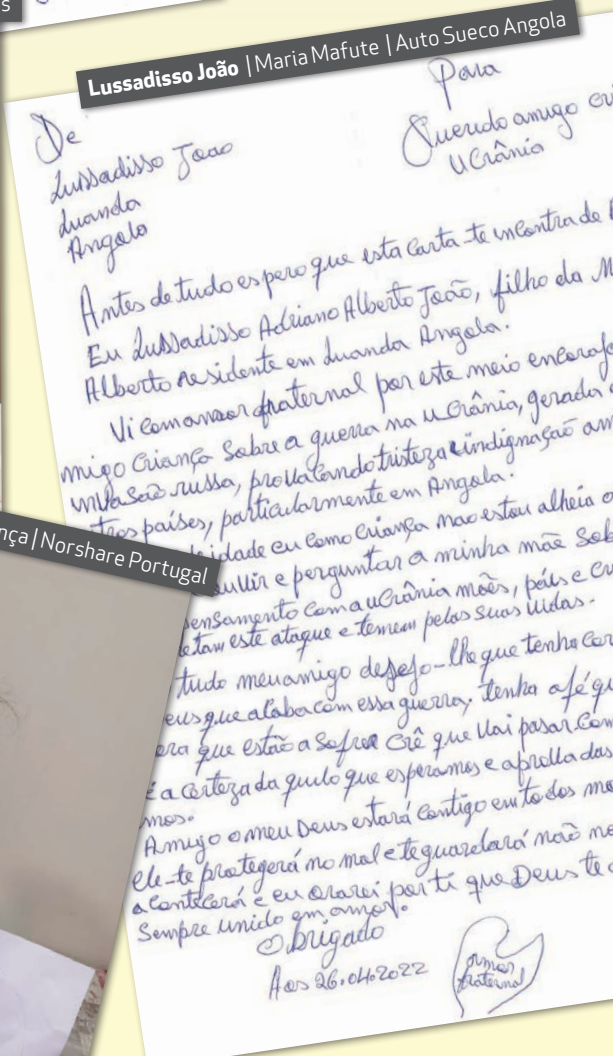 s
Lussadisso João | Maria Mafute | Auto Sueco Angola
De
Lussadisso Joao
Luanda
Angola
Para
Querido amigo
Ucrânia
Antes de tudo espero que esta carta-te incontra de
Eu Lussadisso Adriano Alberto João, filho da M
Alberto residente em Luanda Angola.
Vi com amor fraternal por este meio encoraja
migo Criança Sobre a guerra na ucrânia, gerada
invasão russa, provocando tristeza e indignação
tros países, particularmente em Angola.
idade eu como criança mao estou alheia a
uvir e perguntar a minha mãe Sob
ensamento com a ucrânia mães, pais e cr
etam este ataque e temem pelas suas vidas.
tudo meu amigo desejo-lhe que tenha
eus que acaba com essa guerra, tenha a fé qu
era que estão a sofrer crê que vai pasar. Com
é a certeza da quilo que esperamos e a prova das
mos.
Amigo o meu Deus estará contigo em todos mo
ele-te protegerá no mal e te guardará não
acontecerá e eu orarei por ti que Deus te
Sempre unido em amor.
Obrigado
Aos 26.04.2022
amor
fraternal
nça | Norshare Portugal